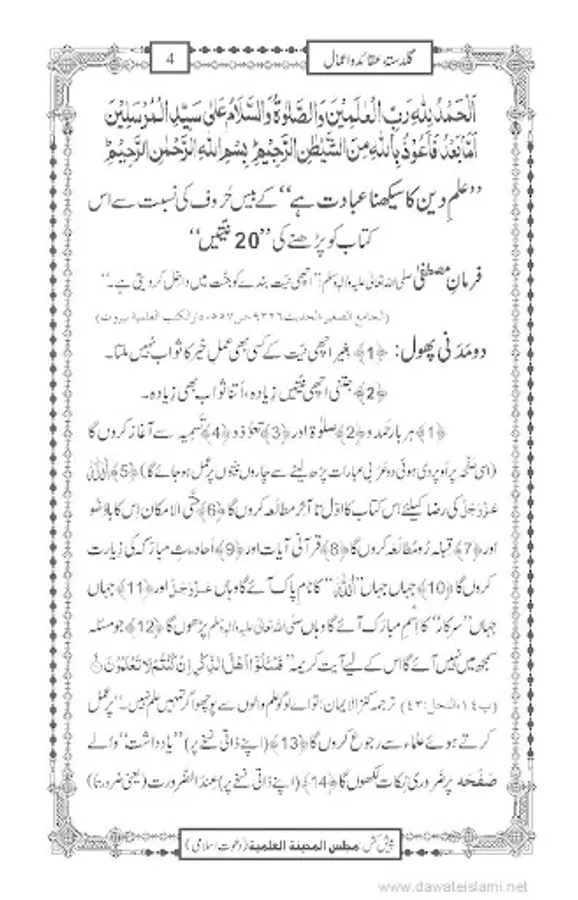 گلدستہ عقائد واعمال
4
اَلْحَمْدُ لِلّٰهِ رَبِّ الْعٰلَمِيْنَ وَالصَّلٰوةُ وَالسَّلَامُ عَلٰى سَيِّدِ الْمُرْسَلِيْنَ
اَمَّا بَعْدُ فَاَعُوْذُ بِاللّٰهِ مِنَ الشَّيْطٰنِ الرَّجِيْمِ ؕ بِسْمِ اللّٰهِ الرَّحْمٰنِ الرَّحِيْمِ ؕ
”علمِ دین کا سیکھنا عبادت ہے“ کے بیس حُروف کی نسبت سے اس
کتاب کو پڑھنے کی ”20 نیّتیں“
فرمانِ مصطفٰی صلی اللہ تعالیٰ علیہ والہٖ وسلم: ”اچھی نیّت بندے کو جنّت میں داخل کر دیتی ہے۔“
(الجامع الصغیر،الحدیث۹۳۲۶،ص۵۵۷،دارالکتب العلمیة بیروت)
دو مَدَنی پھول: ﴿1﴾ بغیر اچھی نیّت کے کسی بھی عملِ خیر کا ثواب نہیں ملتا۔
﴿2﴾ جتنی اچھی نیّتیں زِیادہ، اُتنا ثواب بھی زِیادہ۔
﴿1﴾ ہر بار حمد و ﴿2﴾ صلوٰۃ اور ﴿3﴾ تعوُّذ و ﴿4﴾ تَسْمِیہ سے آغاز کروں گا
(اسی صَفْحَہ پر اُوپر دی ہوئی دو عَرَبی عبارات پڑھ لینے سے چاروں نیّتوں پر عمل ہو جائے گا) ﴿5﴾ اللہ
عَزَّوَجَلَّ کی رِضا کیلئے اس کتاب کا اوّل تا آخِر مطالَعہ کروں گا ﴿6﴾ حتَّی الْاِمکان اِس کا باوُضو
اور ﴿7﴾ قبلہ رُو مُطالَعہ کروں گا ﴿8﴾ قراٰنی آیات اور ﴿9﴾ اَحادیثِ مبارَکہ کی زِیارت
کروں گا ﴿10﴾ جہاں جہاں ”اللہ“ کا نامِ پاک آئے گا وہاں عَزَّوَجَلَّ اور ﴿11﴾ جہاں
جہاں ”سرکار“ کا اِسْمِ مبارَک آئے گا وہاں صلی اللہ تعالیٰ علیہ والہٖ وسلم پڑھوں گا ﴿12﴾ جو مسئلہ
سمجھ میں نہیں آئے گا اس کے لیے آیتِ کریمہ ”فَسْـَٔلُوْۤا اَهْلَ الذِّكْرِ اِنْ كُنْتُمْ لَا تَعْلَمُوْنَ
(پ۱۴،النحل:۴۳) ترجمہ کنز الایمان: تو اے لوگو علم والوں سے پوچھو اگر تمہیں علم نہیں۔“ پر عمل
کرتے ہوئے علماء سے رجوع کروں گا ﴿13﴾ (اپنے ذاتی نسخے پر) ”یادداشت“ والے
صَفْحَہ پر ضَروری نِکات لکھوں گا ﴿14﴾ (اپنے ذاتی نسخے پر) عِندَ الضَّرورت (یعنی ضرورتاً)
پیش کش: مجلس المدینة العلمیة (دعوتِ اسلامی)
www.dawateislami.net